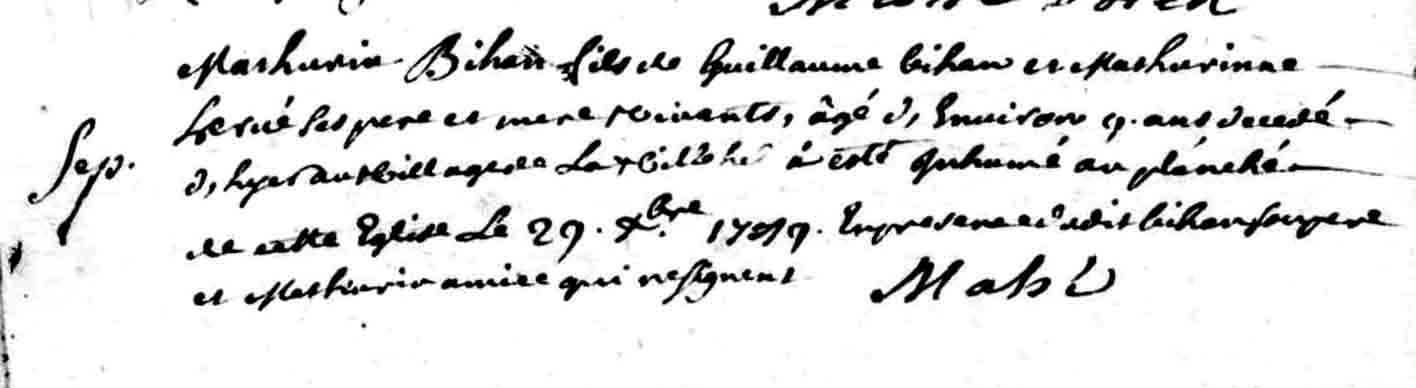 Mathurin Bihan fils de Guillaume bihan et Mathurinne
ses pere et mere vivants, âgé d, Environ 9. ans decedé
Sep. d, hyer au village de La à esté Inhumé au planché
de cette Eglise Le 29. xbre En presence dudit bihan son pere
et Mathurin amice qui ne signent Mahé